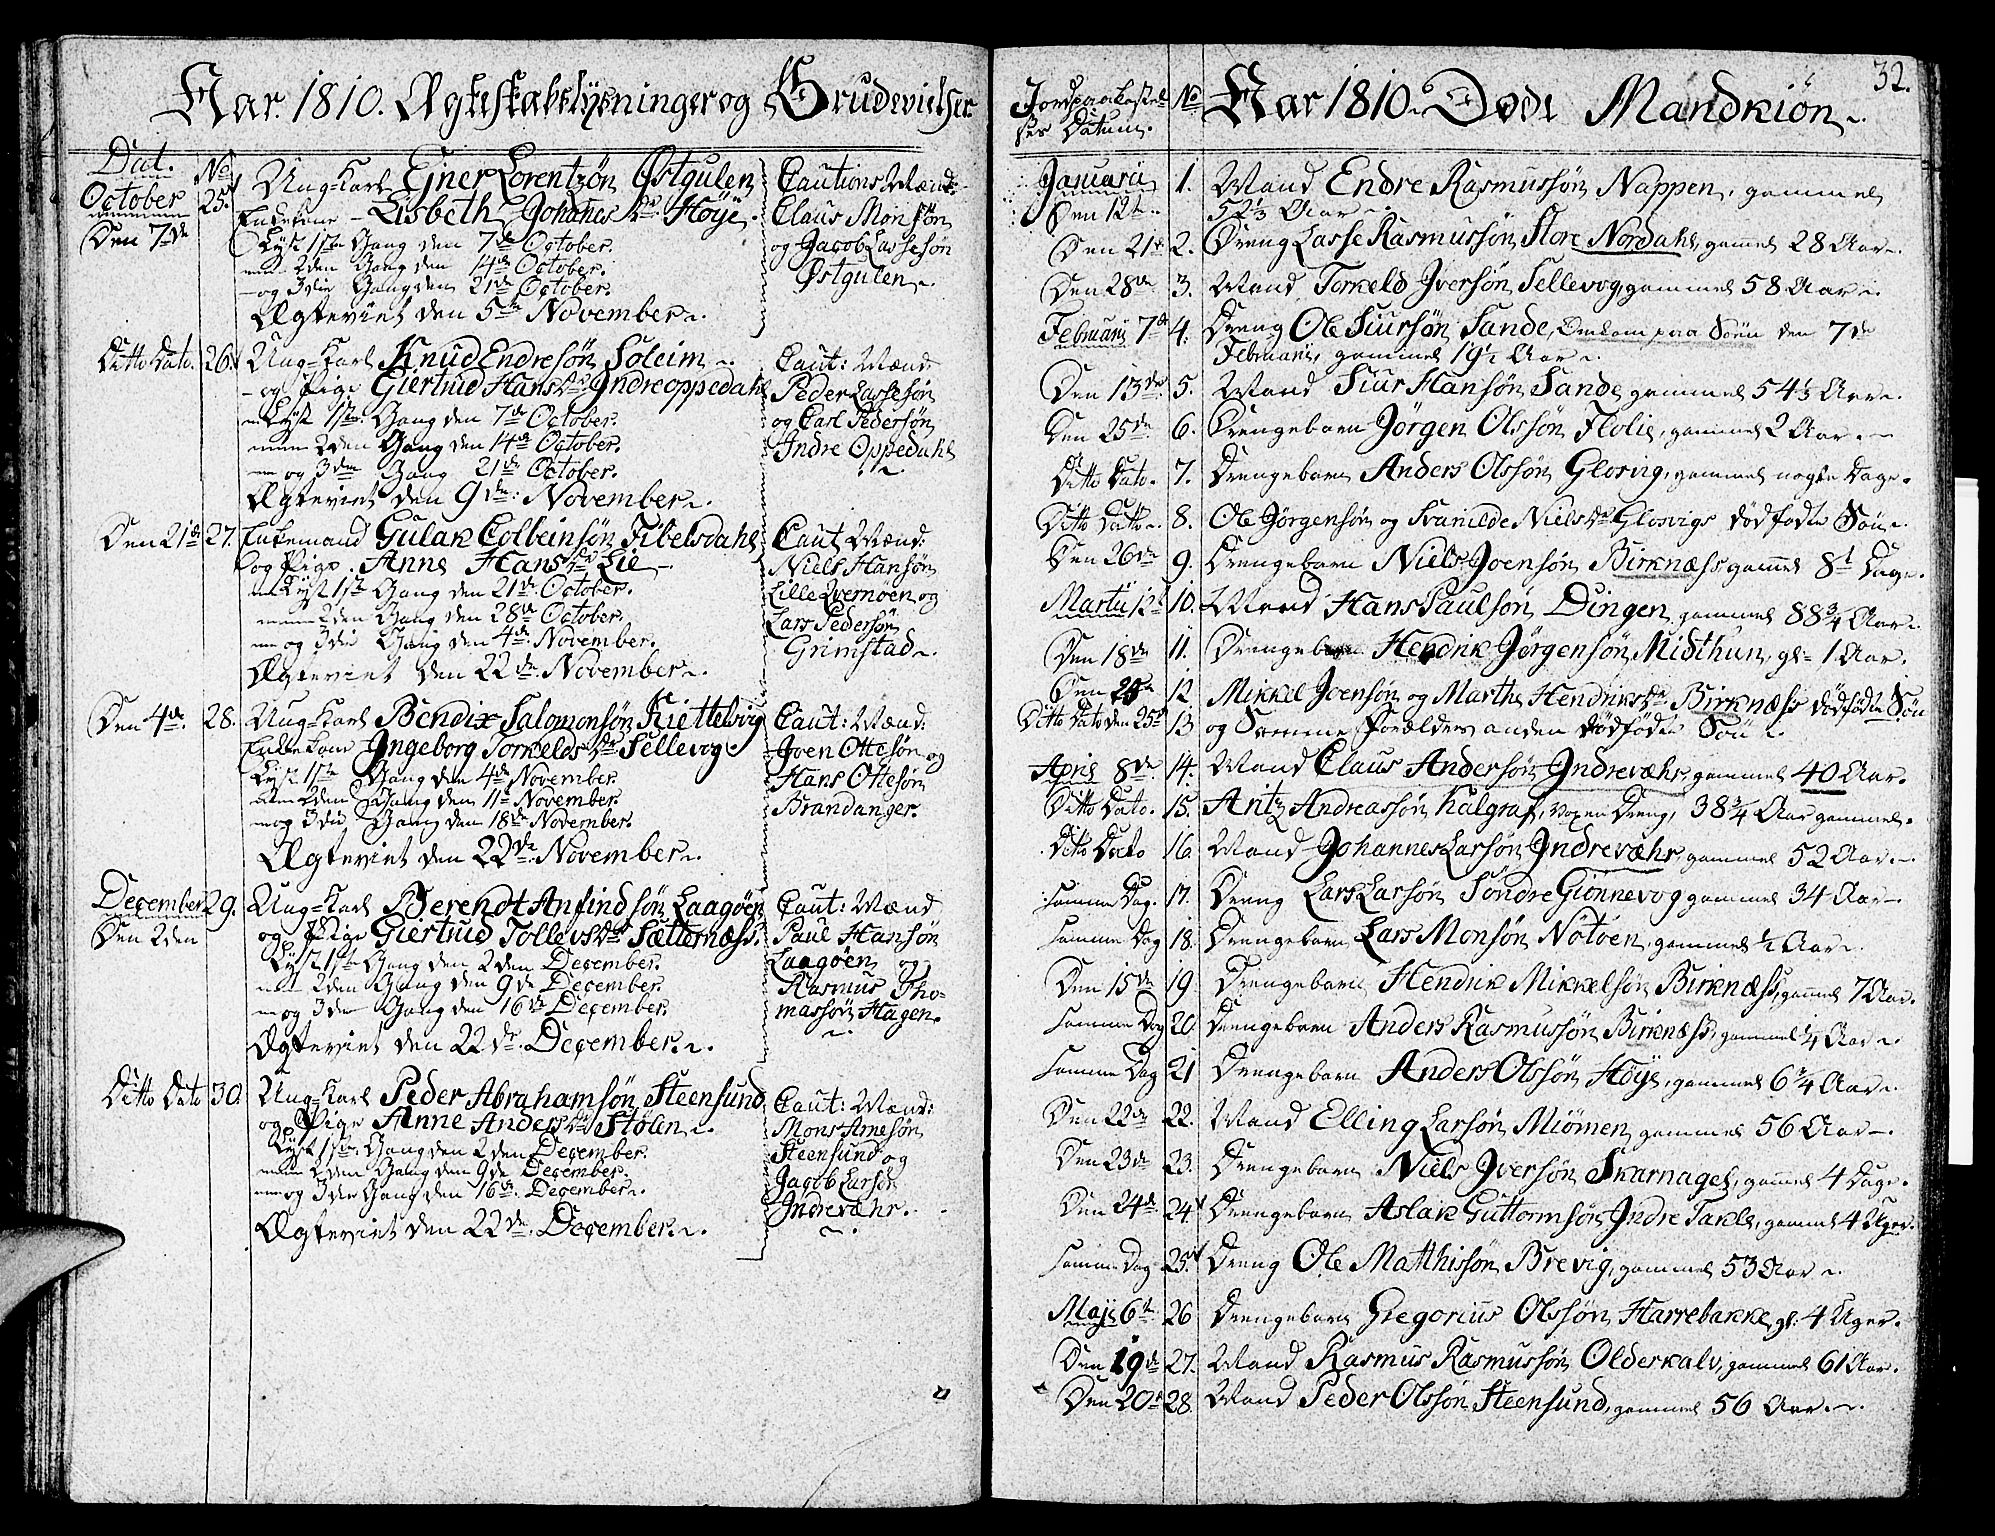 Aar 1810. Ægteskabslysninger og Brudevielser
Dat. No
October 25. Ung-Karl Ejner Lorentzøn Østgulen
Enkekone Lisbeth Johannes Dr Høye.
Den 7de
Lyst 1ste Gang den 7de October.
2den Gang den 14de October.
og 3die Gang den 21de October.
Ægteviet den 5te November.
Cautions Mænd:
Claus Monsøn
og Jacob Lassesøn
Østgulen.
Ditto Dato. 26. Ung-Karl Knud Endresøn Soleim
og Pige Giertrud Hans Dr Indreoppedahl
Lyst 1ste Gang den 7de October.
2den Gang den 14de October.
og 3die Gang 21de October.
Ægteviet den 9de November.
Caut: Mænd:
Peder Lassesøn
og Carl Pedersøn
Indre Oppedahl
Den 21de 27. Enkemand Gulak Colbeinsøn Fibelsdahl
og Pige Anne Hans Dr Lie
Lyst 1ste Gang den 21de October.
2den Gang den 28de October.
og 3die Gang den 4de November.
Ægteviet den 22de November.
Caut Mænd:
Niels Hansøn
Lille Qvernøen og
Lars Pedersøn
Grimstad.
Den 4de. 28. Ung-Karl Bendix Salomonsøn Kiettelvig
Enkekone Ingeborg Torkelds Dr Sellevog.
Lyst 1ste Gang den 4de November.
2den Gang den 11te November.
og 3die Gang den 18de November.
Ægteviet den 22de November.
Caut: Mænd:
Joen Ottesøn og
Hans Ottesøn
Brandanger.
December 29. Ung-Karl Berendt Anfindsøn Laagøen
Den 2den og Pige Giertrud Tollevs Dr Sætternæss.
Lyst 1ste Gang den 2den December.
2den Gang den 9de December.
og 3die Gang den 16de December.
Ægteviet den 22de December.
Caut: Mænd
Paul Hansøn
Laagøen og
Rasmus Tho-
massøn Hagen.
Ditto Dato 30. Ung-Karl Peder Abrahamsøn Steensund
og Pige Anne Anders Dr Stølen.
Lyst 1ste Gang den 2den December.
2den Gang den 9de December.
og 3die Gang den 16de December.
Ægteviet den 22de December.
Caut: Mænd:
Mons Arnesøn
Steensund og
Jacob Larsøn
Indrevæhr.
32.
Jordpaakastel-
ses Datum. No Aar 1810. Døde Mandkiøn.
Januarii 1. Mand Endre Rasmussøn Nappen, gammel
Den 12te 52 1/3 Aar.
Den 21de 2. Dreng Lasse Rasmussøn Store Nordahl, gammel 28 Aar.
Den 28de 3. Mand Torkeld Iversøn Sellevog gammel 58 Aar.
Februarii 7de 4. Dreng Ole Siursøn Sande, Omkom paa Søen den 7de
Februarii, gammel 19 1/2 Aar.
Den 13de 5. Mand Siur Hansøn Sande gammel 54 1/3 Aar.
Den 25de 6. Drengebarn Jørgen Olssøn Flolie, gammel 2 Aar.
Ditto Dato. 7. Drengebarn Anders Olssøn Glosvig, gammel nogle Dage.
Ditto Datto 8. Ole Jørgensøn og Svanilde Niels Dr Glosvigs dødfødte Søn.
Den 26de 9. Drengebarn Niels Joensøn Birknæss gammel 8t Dage.
Martii 12te 10. Mand Hans Paulsøn Dingen gammel 88 3/4 Aar.
Den 18de 11. Drengebarn Hendrik Jørgensøn Midthun, gl- 1 Aar.
Den 25de 12 Mikkel Joensøn og Marthe Hendriks Dr Birknæss dødfødte Søn
Ditto Dato den 25de 13 og Samme Forældres anden dødfødte Søn.
April 8de 14. Mand Claus Andersøn Indrevæhr, gammel 40 Aar.
Ditto Dato. 15. Aritz Andreassøn Kalgraf, voxen Dreng, 38 3/4 Aar gammel.
Ditto Dato 16. Mand Johannes Larsøn Indrevæhr, gammel 52 Aar.
samme Dag. 17. Dreng Lars Larsøn Søndre Giønnevog gammel 34 Aar
samme Dag 18. Drengebarn Lars Monsøn Nótøen, gammel 1/2 Aar.
Den 15de 19 Drengebarn Hendrik Mikkelsøn Birknæss, gammel 7 Aar.
samme Dag 20. Drengebarn Anders Rasmussøn Birknæss, gammel 1/4 Aar.
samme Dag 21 Drengebarn Anders Olssøn Høye, gammel 6 3/4 Aar.
Den 22de 22. Mand Elling Larsøn Miömen gammel 56 Aar.
Den 23de 23. Drengebarn Niels Iversøn Skarnagel, gammel 4 Dage.
Den 24de 24. Drengebarn Aslak Guttormsøn Indre Takle, gammel 4 Uger.
samme Dag 25. Dreng Ole Matthissøn Brevig, gammel 53 Aar.
Maji 6te 26 Drengebarn Gregorius Olssøn Harrebakke gl. 4 Uger.
Den 19de 27. Mand Rasmus Rasmussøn Olderkalv, gammel 61 Aar.
Den 20de 28. Mand Peder Olssøn Steensund, gammel 56 Aar.